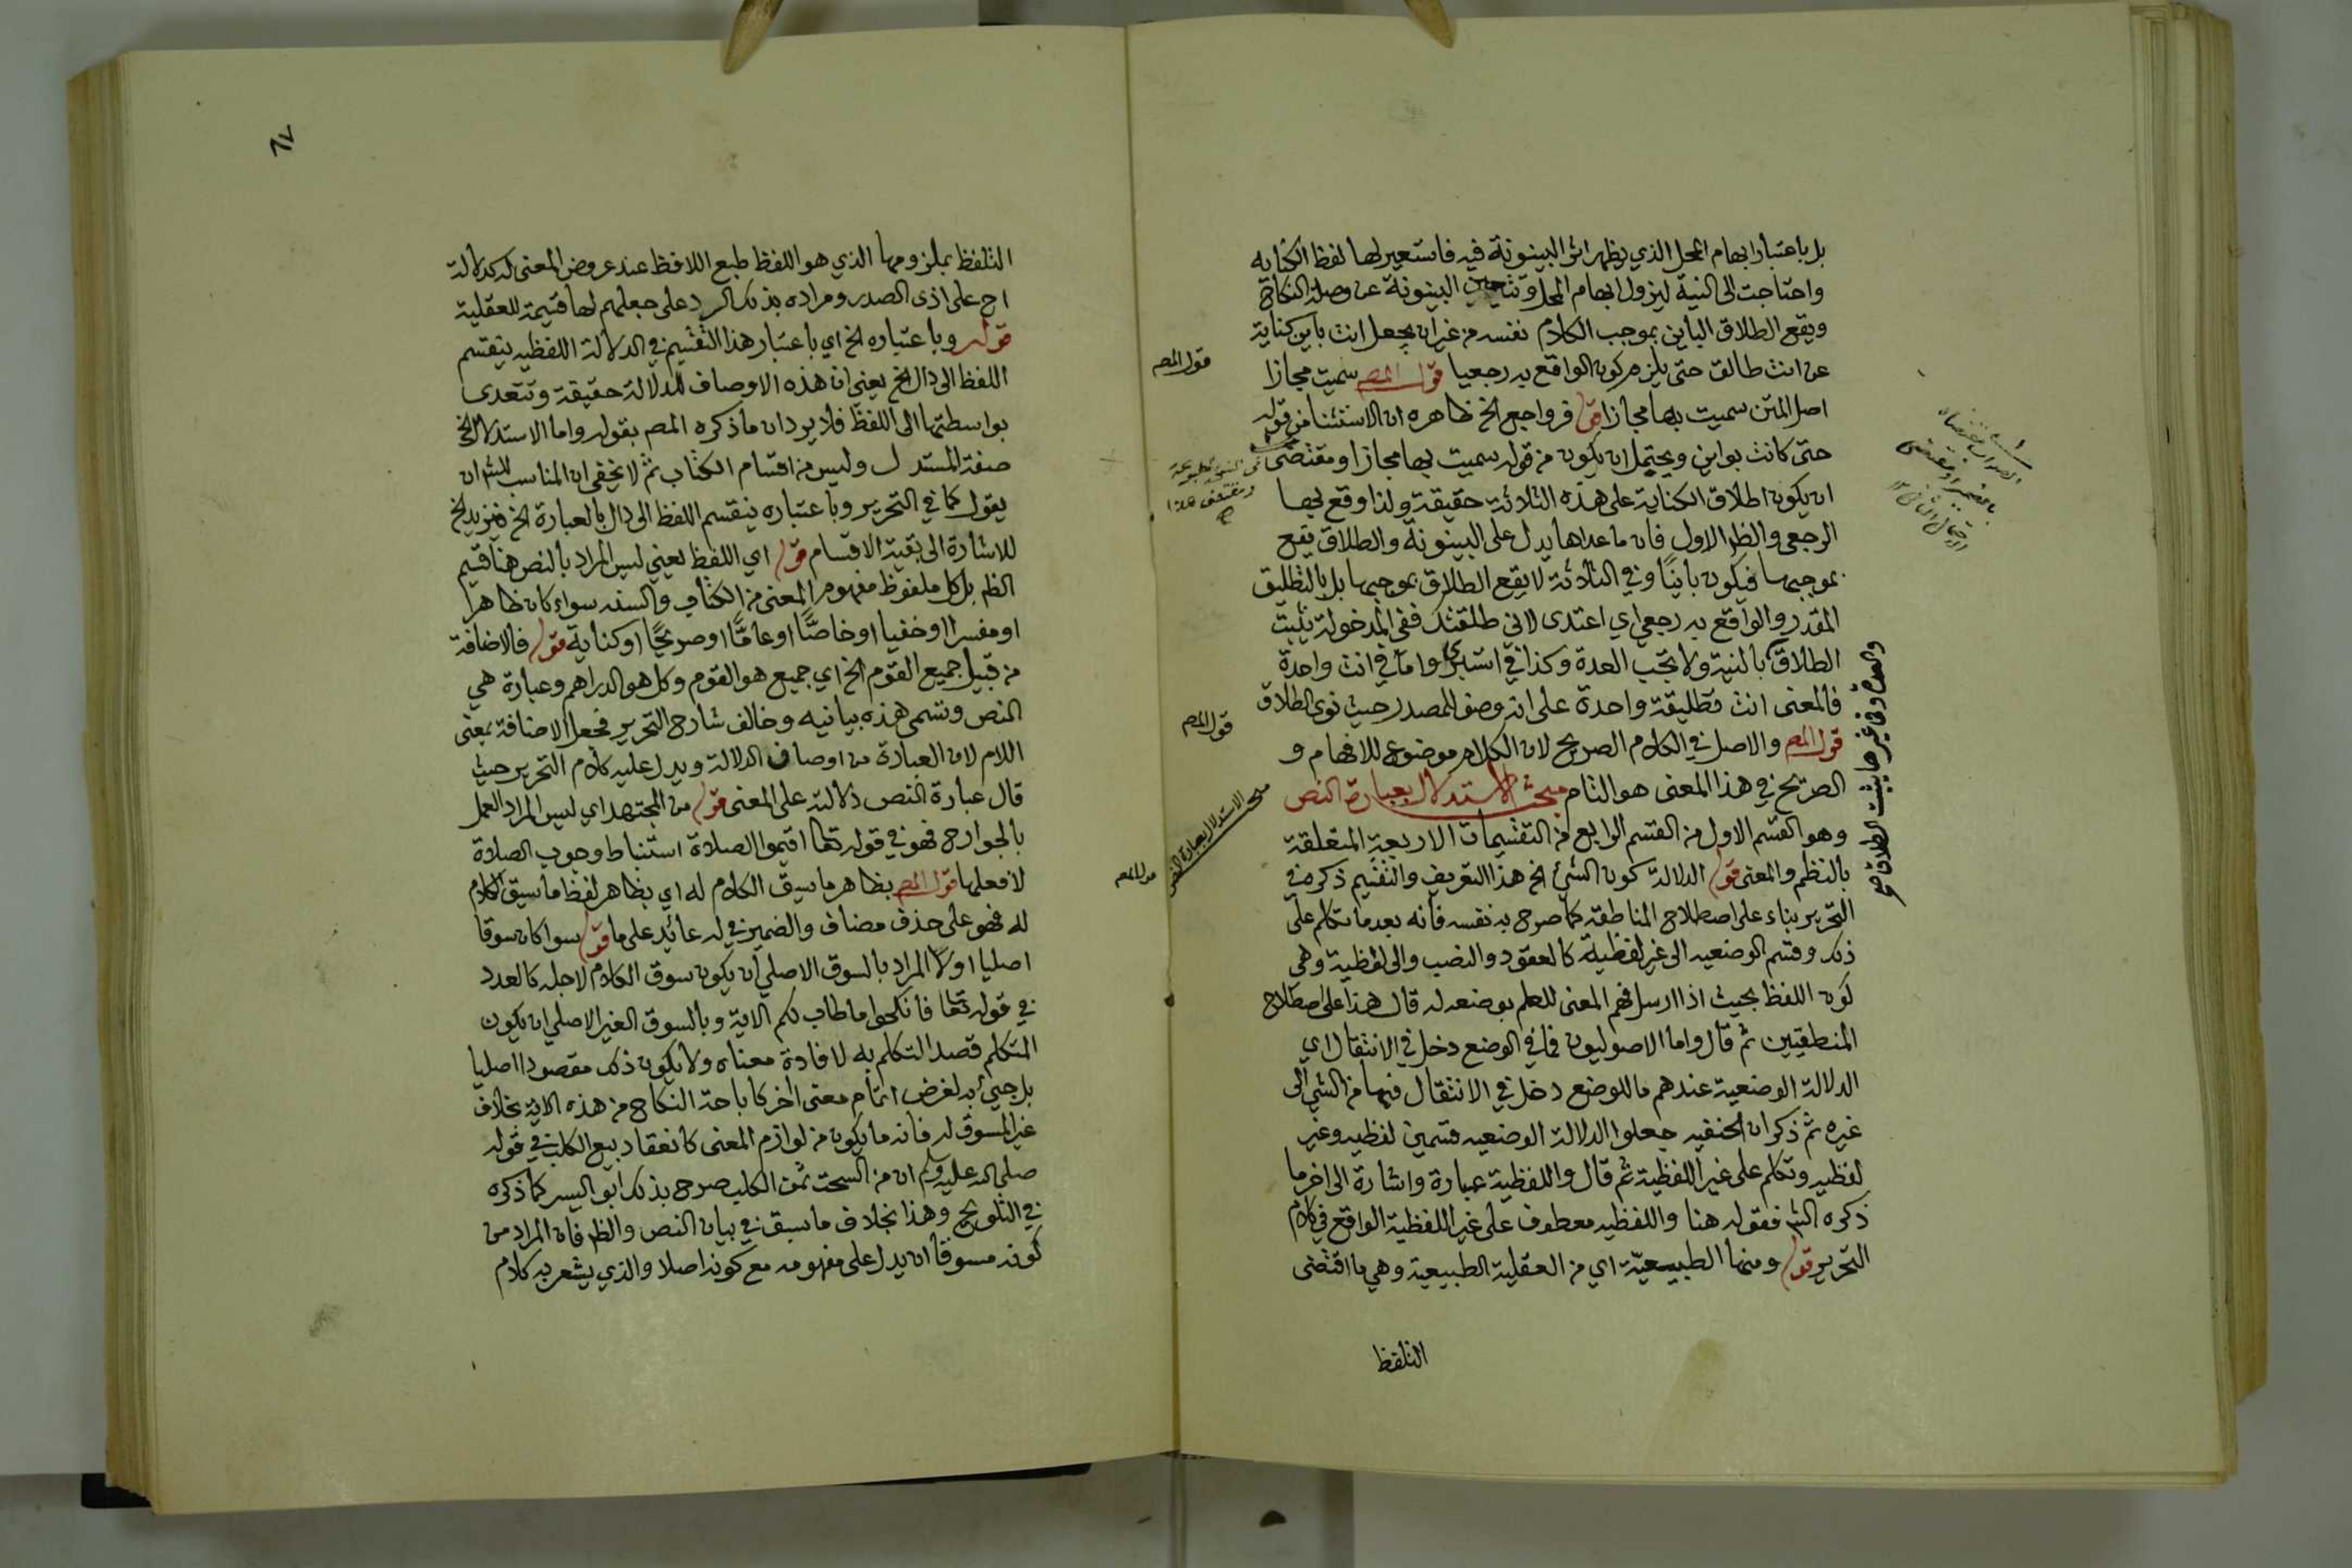 بل باعتبار ابهام المحل الذي يظهر اثر البينونة فيه فاستعير لها لفظ الكنايه
واحتاجت الى النية ليزول ابهام المحل وتتعين البينونة عن وصلة النكاح
ويقع الطلاق الباين بموجب الكلام نفسه من غير ان يجعل انت باين كناية
عن انت طالق حتى يلزم كون الواقع به رجعيا قول المصـ سميت مجازا
اصل المتن سميت بها مجازا قوله فرواجع الخ ظاهره ان الاستثنا من قوله
حتى كانت بواين ويحتمل ان يكون من قوله سميت بها مجازا ومقتضى
ان يكون اطلاق الكناية على هذه الثلاثة حقيقة ولذا وقع بها
الرجعي والظـ الاول فان ما عداها يدل على البينونة والطلاق يقع
بموجبها فيكون باينًا وفي الثلاثة لا يقع الطلاق بموجبها بل بالتطليق
المقدر والواقع به رجعي اي اعتدى لاني طلقتك ففي المدخولة يثبت
الطلاق بالنية ولا تجب العدة وكذا في استبرئي واما في انت واحدة
فالمعنى انت تطليقة واحدة على انه وصف للمصدر حيث نوى الطلاق
قول المصـ والاصل في الكلام الصريح لان الكلام موضوع للافهام و
الصريح في هذا المعنى هو التام مبحث الاستدلال بعبارة النص
وهو القسم الاول من القسم الرابع من التقسيمات الاربعة المتعلقة
بالنظم والمعنى قوله الدلالة كون الشيئ الخ هذا التعريف والتقسيم ذكره في
التحرير بناء على اصطلاح المناطقة كما صرح به نفسه فانه بعدما تكلم على
ذلك وقسم الوضعيه الى غير لفظية كالعقود والنصب والى لفظية وهي
كون اللفظ بحيث اذا ارسل فهم المعنى للعلم بوضعه له قال هذا على اصطلاح
المنطقيين ثم قال واما الاصوليون فما في الوضع دخل في الانتقال اي
الدلالة الوضعية عندهم ما للوضع دخل في الانتقال فيها من الشي الى
غيره ثم ذكر ان الحنفيه جعلوا الدلالة الوضعيه قسمين لفظيه وغير
لفظيه وتكلم على غير اللفظية ثم قال واللفظية عبارة واشارة الى اخر ما
ذكره الشـ فقوله هنا واللفظيه معطوف على غير اللفظية الواقع في كلام
التحرير قوله ومنها الطبيعيّة اي من العقلية الطبيعية وهي ما اقتضى
التلفظ
قول المصـ
قول المصـ
مبحث الاستدلال بعبارة النص
والعدة وفي غيرها يثبت الطلاق صح
٦٧
التلفظ بملزومها الذي هو اللفظ طبع اللافظ عند عروض المعنى له كدلالة
اح على اذى الصدر ومراده بذلك الرد على جعلهم لها قسيمة للعقلية
قوله وباعتباره الخ اي باعتبار هذا التقسيم في الدلالة اللفظيه ينقسم
اللفظ الى دال الخ يعني ان هذه الاوصاف للدلالة حقيقة وتتعدى
بواسطتها الى اللفظ فلا يرد ان ما ذكره المصـ بقوله واما الاستدلال الخ
صفة المستدل وليس من اقسام الكتاب ثم لا يخفى ان المناسب للشـ ان
يقول كما في التحرير وباعتباره ينقسم اللفظ الى دال بالعبارة الخ فيزيد الخ
للاشارة الى بقية الاقسام قوله اي اللفظ يعني ليس المراد بالنص هنا قسيم
الظـ بل كل ملفوظ مفهوم المعنى من الكتاب والسنه سواء كان ظاهرا
او مفسرا او خفيا او خاصًّا او عامًّا او صريحًا او كناية قوله فالاضافة
من قبيل جميع القوم الخ اي جميع هو القوم وكل هو الدراهم وعبارة هي
النص وتسمى هذه بيانيه وخالف شارح التحرير فجعل الاضافة بمعنى
اللام لان العبارة من اوصاف الدلالة ويدل عليه كلام التحرير حيث
قال عبارة النص دلالته على المعنى قوله من المجتهد اي ليس المراد العمل
بالجوارح فهو في قوله تعا اقيموا الصلاة استنباط وجوب الصلاة
لا فعلها قول المصـ بظاهر ما سيق الكلام له اي بظاهر لفظ ما سيق الكلام
له فهو على حذف مضاف والضمير في له عائد على ما قوله سوا كان سوقا
اصليا او لا المراد بالسوق الاصلي ان يكون سوق الكلام لاجله كالعدد
في قوله تعا فانكحوا ما طاب لكم الاية وبالسوق الغير الاصلي ان يكون
المتكلم قصد التكلم به لافادة معناه ولا يكون ذلك مقصودا اصليا
بل جيئ به لغرض اتمام معنى اخر كاباحة النكاح من هذه الاية بخلاف
غير المسوق له فانه ما يكون من لوازم المعنى كانعقاد بيع الكلب في قوله
صلى الله عليه وسلم ان من السحت ثمن الكلب صرح بذلك ابو اليسر كما ذكره
في التلويح وهذا بخلاف ما سبق في بيان النص والظـ فان المراد من
كونه مسوقا ان يدل على مفهومه مع كونه اصلا والذي يشعر به كلام
قول المصـ